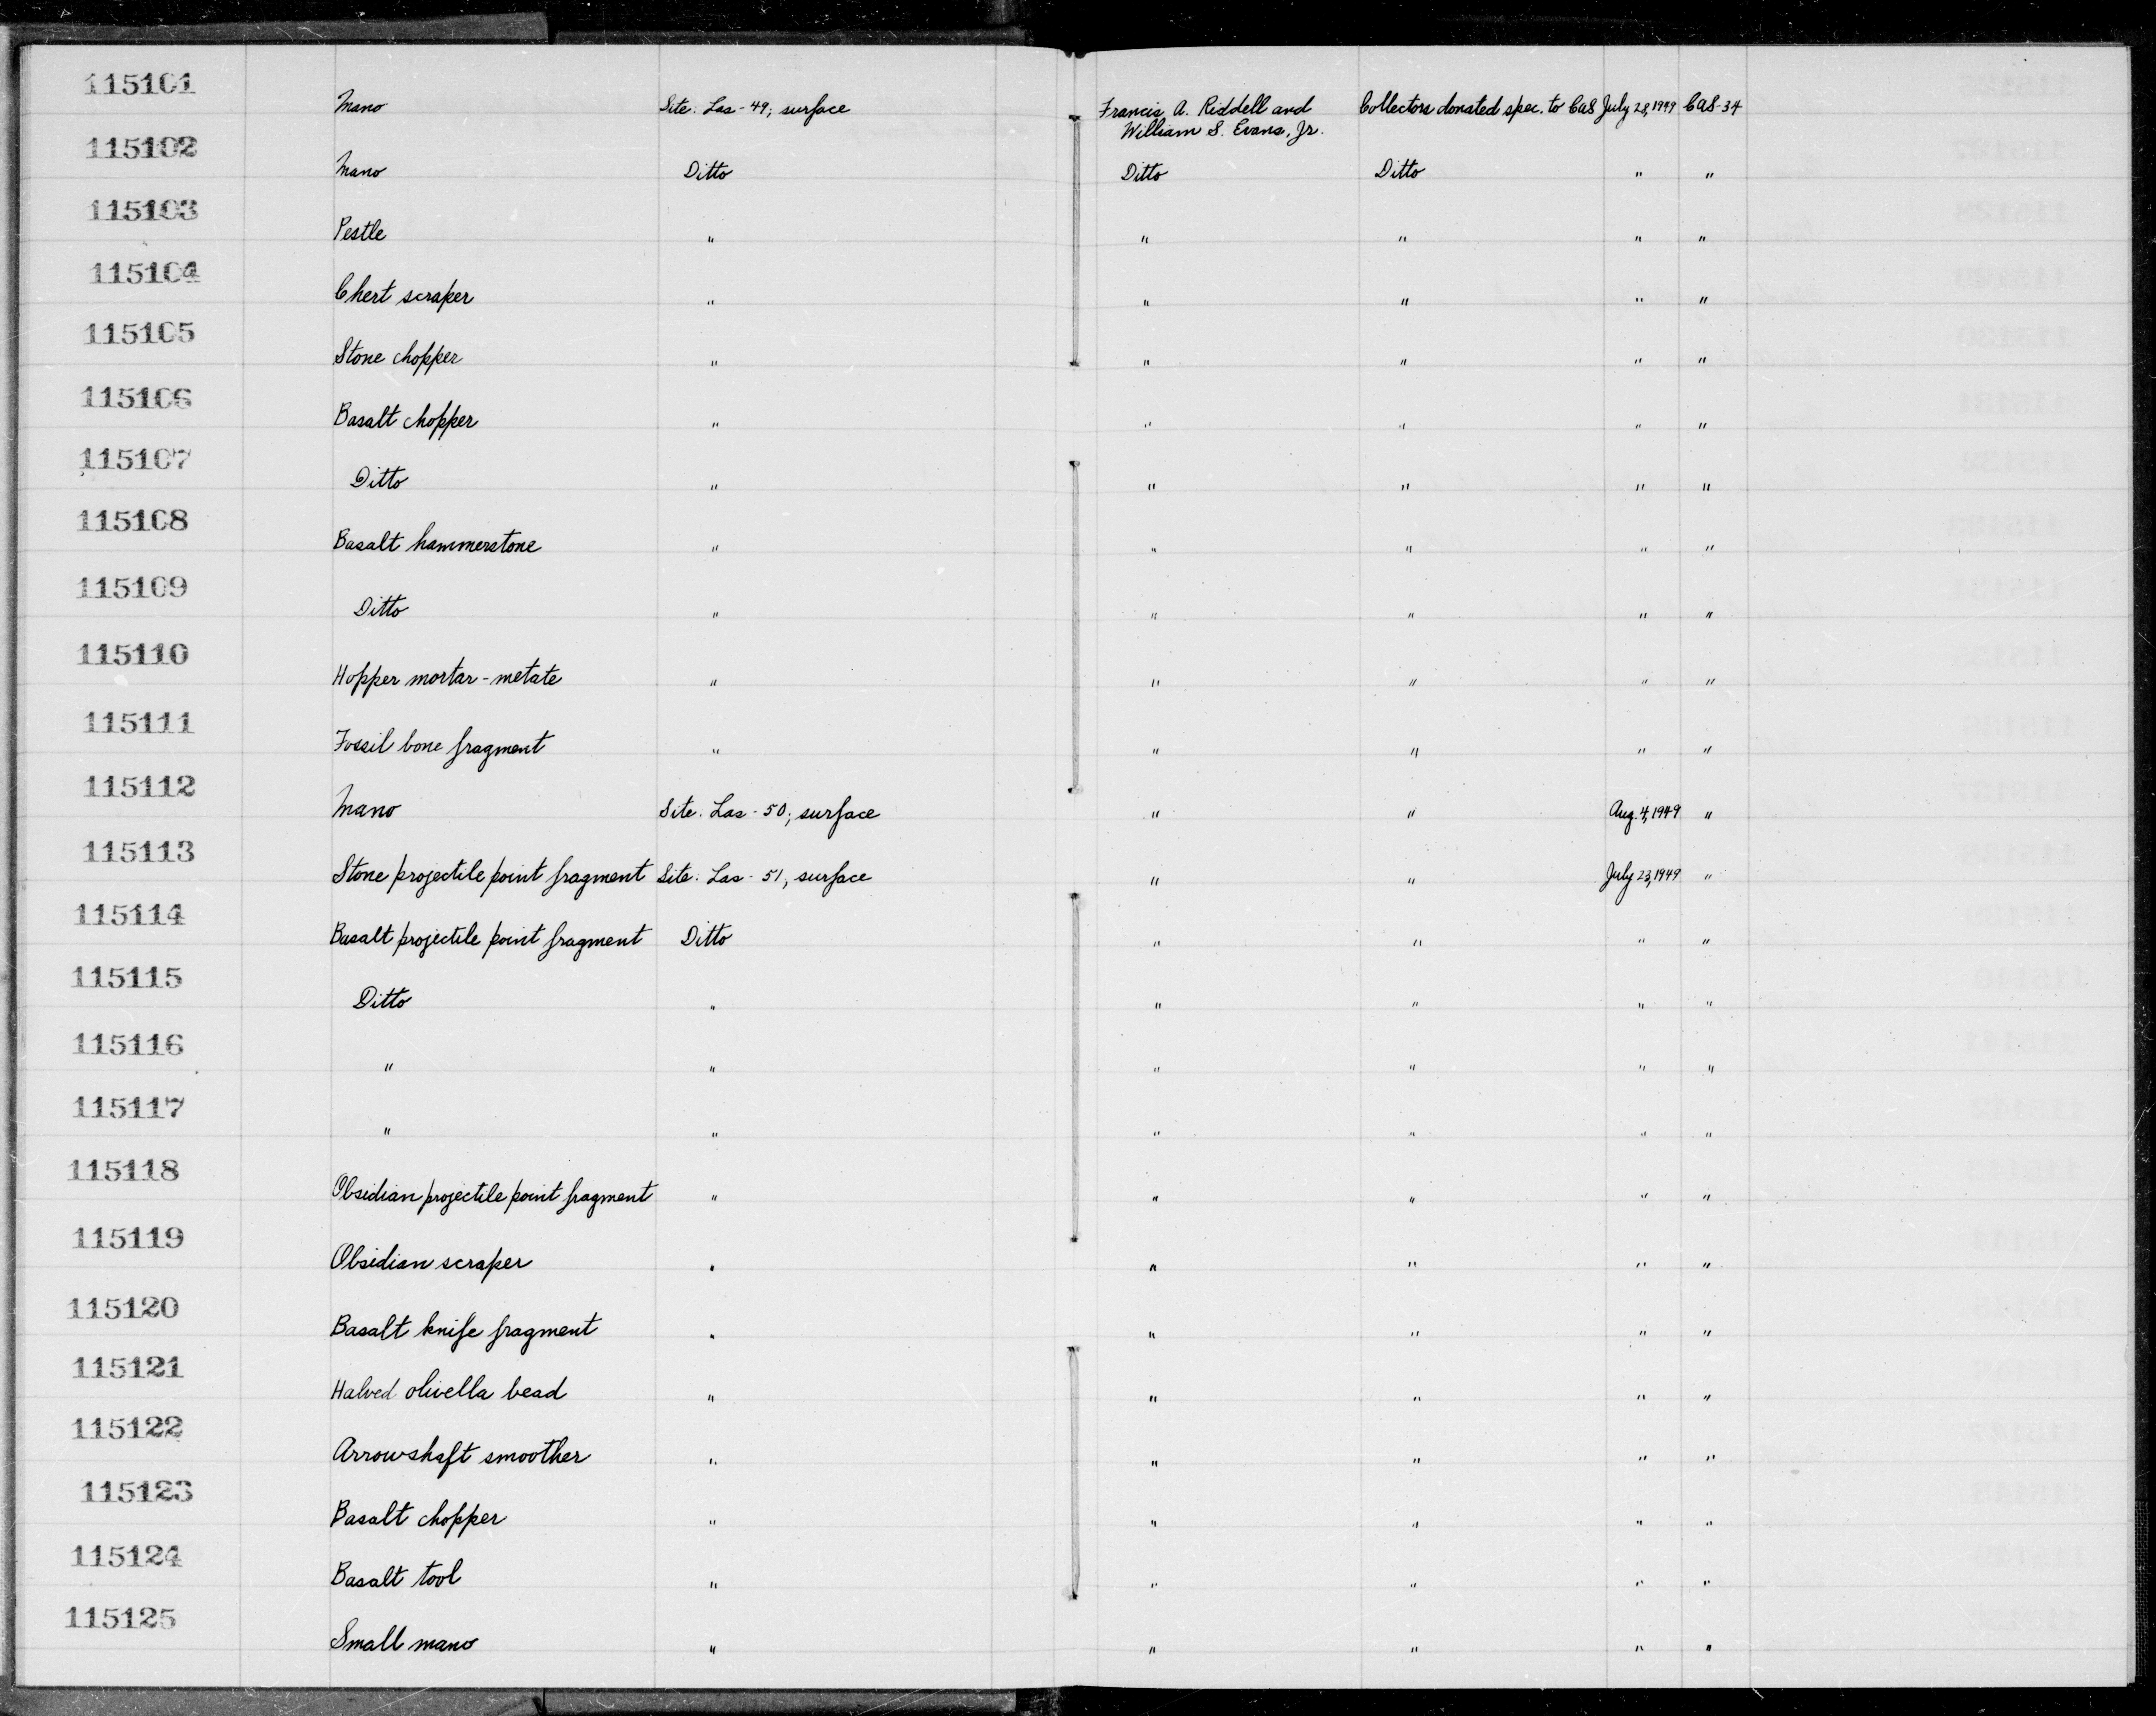 115101
Mano Site: Las-49; surface Francis A. Riddell and Collectors donated spec. to CAS July 28, 1949 CAS-34
William S. Evans, Jr.
115102
Mano Ditto Ditto Ditto " "
115103
Pestle " " " " "
115104
Chert scraper " " " " "
115105
Stone chopper " " " " "
115106
Basalt chopper " " " " "
115107
Ditto " " " " "
115108
Basalt hammerstone " " " " "
115109
Ditto " " " " "
115110
Hopper mortar-metate " " " " "
115111
Fossil bone fragment " " " " "
115112
Mano Site: Las-50; surface " " Aug. 4, 1949 "
115113
Stone projectile point fragment Site: Las-51; surface " " July 23, 1949 "
115114
Basalt projectile point fragment Ditto " " " "
115115
Ditto " " " " "
115116
" " " " " "
115117
" " " " " "
115118
Obsidian projectile point fragment " " " " "
115119
Obsidian scraper " " " " "
115120
Basalt knife fragment " " " " "
115121
Halved olivella bead " " " " "
115122
Arrowshaft smoother " " " " "
115123
Basalt chopper " " " " "
115124
Basalt tool " " " " "
115125
Small mano " " " " "